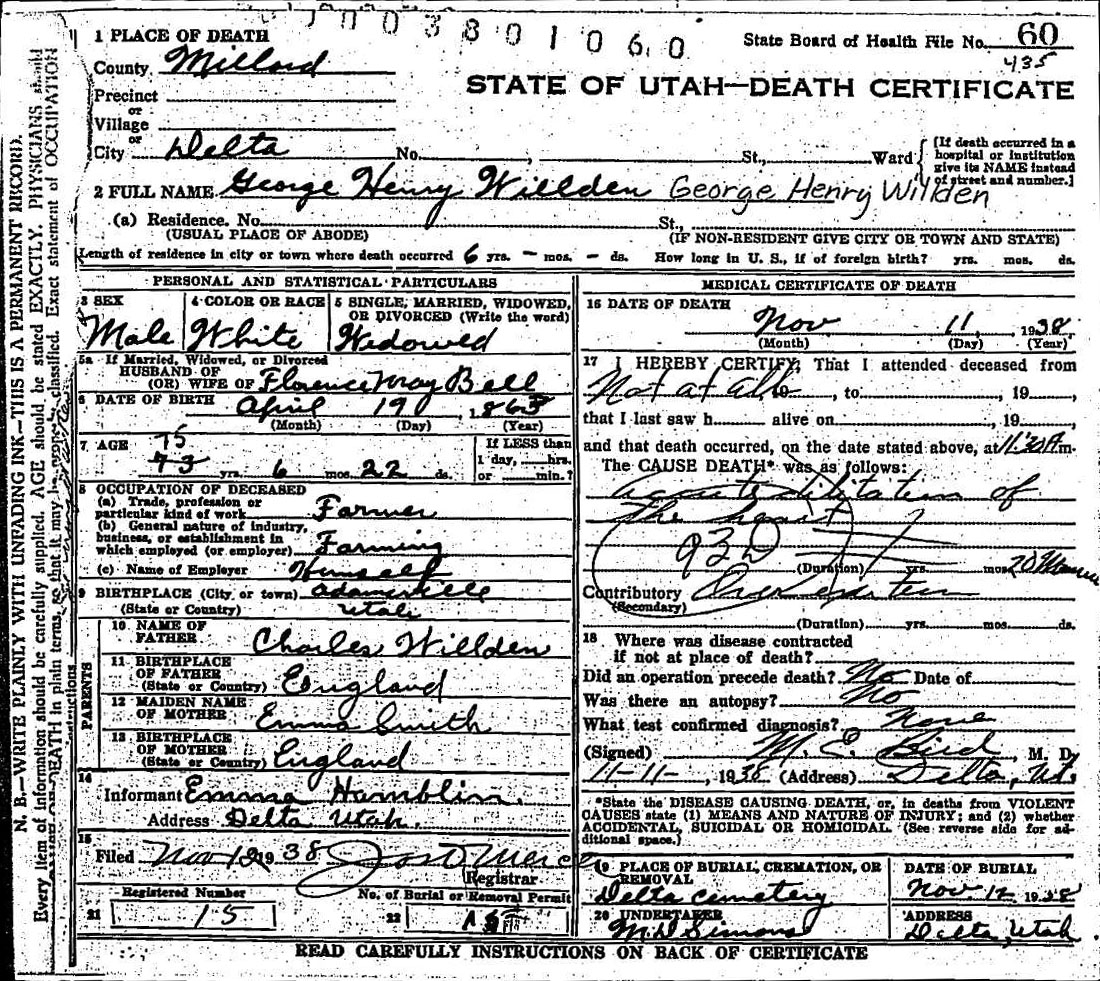 003801060
State Board of Health File No. 60
435
1 PLACE OF DEATH
County Millard
STATE OF UTAH—DEATH CERTIFICATE
Precinct
or
Village
or
City Delta No. , St., Ward
[If death occurred in a hospital or institution give its NAME instead of street and number.]
2 FULL NAME George Henry Willden George Henry Willden
(a) Residence. No. St.,
(USUAL PLACE OF ABODE) (IF NON-RESIDENT GIVE CITY OR TOWN AND STATE)
Length of residence in city or town where death occurred 6 yrs. – mos. – ds. How long in U. S., if of foreign birth? yrs. mos. ds.
PERSONAL AND STATISTICAL PARTICULARS
3 SEX
Male
4 COLOR OR RACE
White
5 SINGLE, MARRIED, WIDOWED, OR DIVORCED (Write the word)
Widowed
5a If Married, Widowed, or Divorced
HUSBAND OF
(OR) WIFE OF Florence May Bell
6 DATE OF BIRTH April 19, 1863
(Month) (Day) (Year)
7 AGE 75
73 yrs. 6 mos. 22 ds.
If LESS than
1 day, hrs.
or min.?
8 OCCUPATION OF DECEASED
(a) Trade, profession or
particular kind of work Farmer
(b) General nature of industry,
business, or establishment in
which employed (or employer) Farming
(c) Name of Employer Himself
9 BIRTHPLACE (City, or town) Adamsville
(State or Country) Utah
PARENTS
10 NAME OF
FATHER Charles Willden
11 BIRTHPLACE
OF FATHER
(State or Country) England
12 MAIDEN NAME
OF MOTHER Emma Smith
13 BIRTHPLACE
OF MOTHER
(State or Country) England
14
Informant Emma Hamblin.
Address Delta Utah.
15
Filed Nov 12 1938
Registrar
Registered Number
21 15
No. of Burial or Removal Permit
22
MEDICAL CERTIFICATE OF DEATH
16 DATE OF DEATH
Nov 11, 1938
(Month) (Day) (Year)
17 I HEREBY CERTIFY, That I attended deceased from
Not at all 19 , to , 19 ,
that I last saw h alive on , 19
and that death occurred, on the date stated above, at 11:30 A.m.
The CAUSE DEATH* was as follows:
Acute dilitation of
the heart
(Duration) yrs. mos. 20
Contributory
(Secondary)
(Duration) yrs. mos. ds.
18 Where was disease contracted
if not at place of death?
Did an operation precede death? No Date of
Was there an autopsy? No
What test confirmed diagnosis? None
(Signed) M. E. Bird, M. D.
11-11-, 1938 (Address) Delta, Ut.
*State the DISEASE CAUSING DEATH, or, in deaths from VIOLENT
CAUSES state (1) MEANS AND NATURE OF INJURY; and (2) whether
ACCIDENTAL, SUICIDAL OR HOMICIDAL. (See reverse side for ad-
ditional space.)
19 PLACE OF BURIAL, CREMATION, OR
REMOVAL
Delta Cemetery
DATE OF BURIAL
Nov. 12 1938
20 UNDERTAKER
ADDRESS
Delta, Utah
READ CAREFULLY INSTRUCTIONS ON BACK OF CERTIFICATE
N. B.—WRITE PLAINLY WITH UNFADING INK—THIS IS A PERMANENT RECORD.
Every item of information should be carefully supplied. AGE should be stated EXACTLY. PHYSICIANS should
DEATH in plain terms, so that it may be classified. Exact statement of OCCUPATION